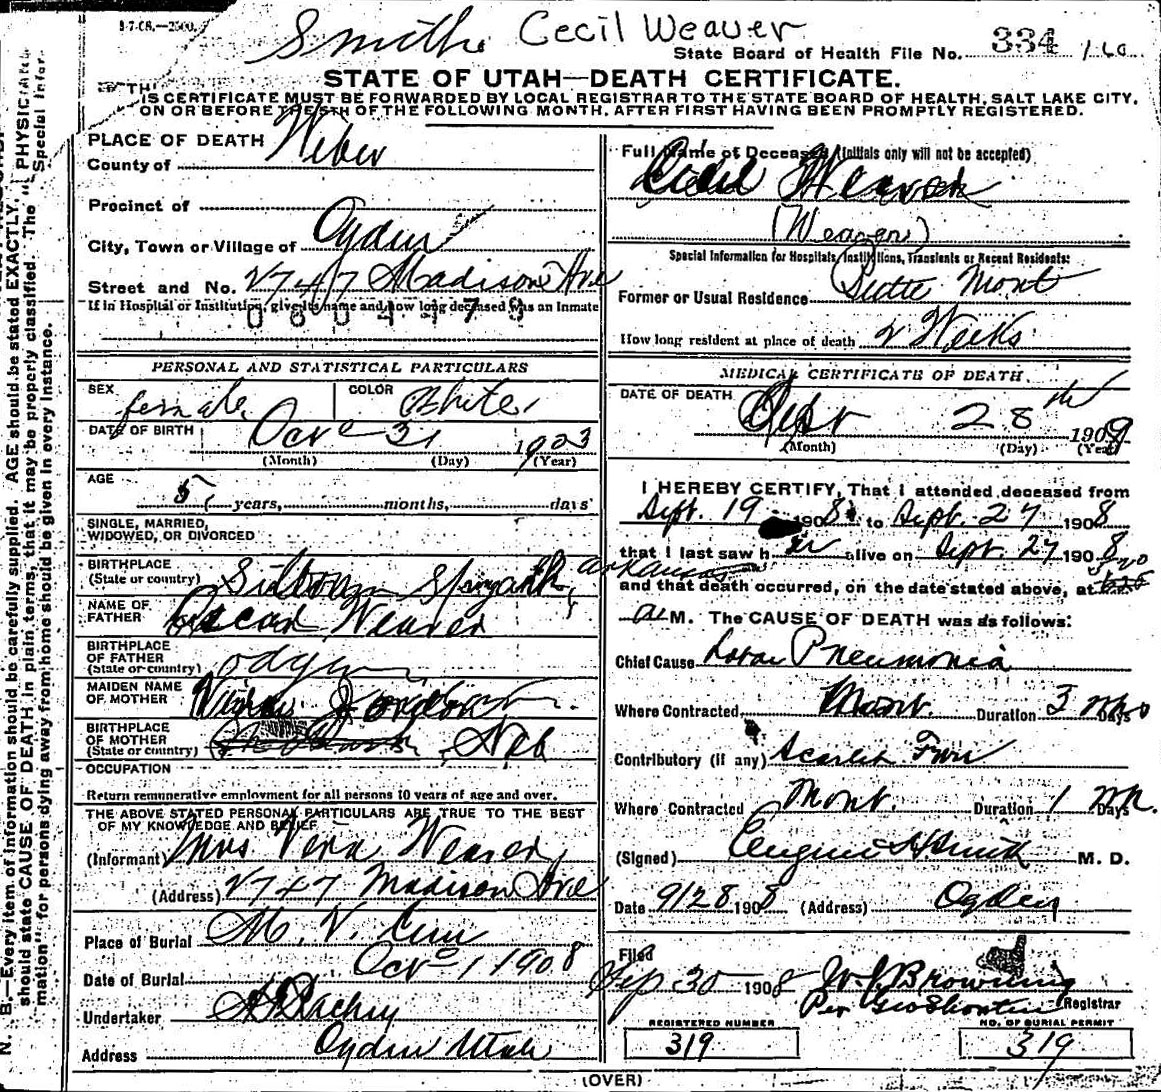 3-7-08.—2500.
Smith Cecil Weaver
State Board of Health File No. 334
STATE OF UTAH—DEATH CERTIFICATE.
IS CERTIFICATE MUST BE FORWARDED BY LOCAL REGISTRAR TO THE STATE BOARD OF HEALTH, SALT LAKE CITY,
ON OR BEFORE THE 5TH OF THE FOLLOWING MONTH, AFTER FIRST HAVING BEEN PROMPTLY REGISTERED.
PLACE OF DEATH
County of Weber
Precinct of
City, Town or Village of Ogden
Street and No. 2747 Madison Ave
If in Hospital or Institution, give its name and how long deceased was an Inmate
0604479
PERSONAL AND STATISTICAL PARTICULARS
SEX female COLOR White
DATE OF BIRTH Oct 31 1903
(Month) (Day) (Year)
AGE
5 years, months, days
SINGLE, MARRIED,
WIDOWED, OR DIVORCED
BIRTHPLACE
(State or country) Arkansas
NAME OF
FATHER Oscar Weaver
BIRTHPLACE
OF FATHER
(State or country)
MAIDEN NAME
OF MOTHER
BIRTHPLACE
OF MOTHER
(State or country) Neb
OCCUPATION
Return remunerative employment for all persons 10 years of age and over.
THE ABOVE STATED PERSONAL PARTICULARS ARE TRUE TO THE BEST
OF MY KNOWLEDGE AND BELIEF
(Informant) Mrs. Vera Weaver
(Address) 2747 Madison Ave
Place of Burial M. V. Cem
Date of Burial Oct 1 1908
Undertaker
Address Ogden Utah
Full Name of Deceased (Initials only will not be accepted)
Cecil Weaver
(Weaver)
Special Information for Hospitals, Institutions, Transients or Recent Residents:
Former or Usual Residence Butte Mont
How long resident at place of death 2 Weeks
MEDICAL CERTIFICATE OF DEATH.
DATE OF DEATH
Sept 28th 1908
(Month) (Day) (Year)
I HEREBY CERTIFY, That I attended deceased from
Sept. 19 1908 to Sept. 27 1908
that I last saw her alive on Sept. 27 1908
and that death occurred, on the date stated above, at
a M. The CAUSE OF DEATH was as follows:
Chief Cause Lobar Pneumonia
Where Contracted Mont. Duration 3 Days
Contributory (if any) Scarlet Fever
Where Contracted Mont. Duration 1 Days
(Signed) Eugene H Smith M. D.
Date 9/28 1908 (Address) Ogden
Filed
Sep 30 1908 W. J. Browning
Per Registrar
REGISTERED NUMBER
319
NO. OF BURIAL PERMIT
319
(OVER)
N. B.—Every item of information should be carefully supplied. AGE should be stated EXACTLY. PHYSICIANS
should state CAUSE OF DEATH in plain terms, that it may be properly classified. The "Special Infor-
mation" for persons dying away from home should be given in every instance.